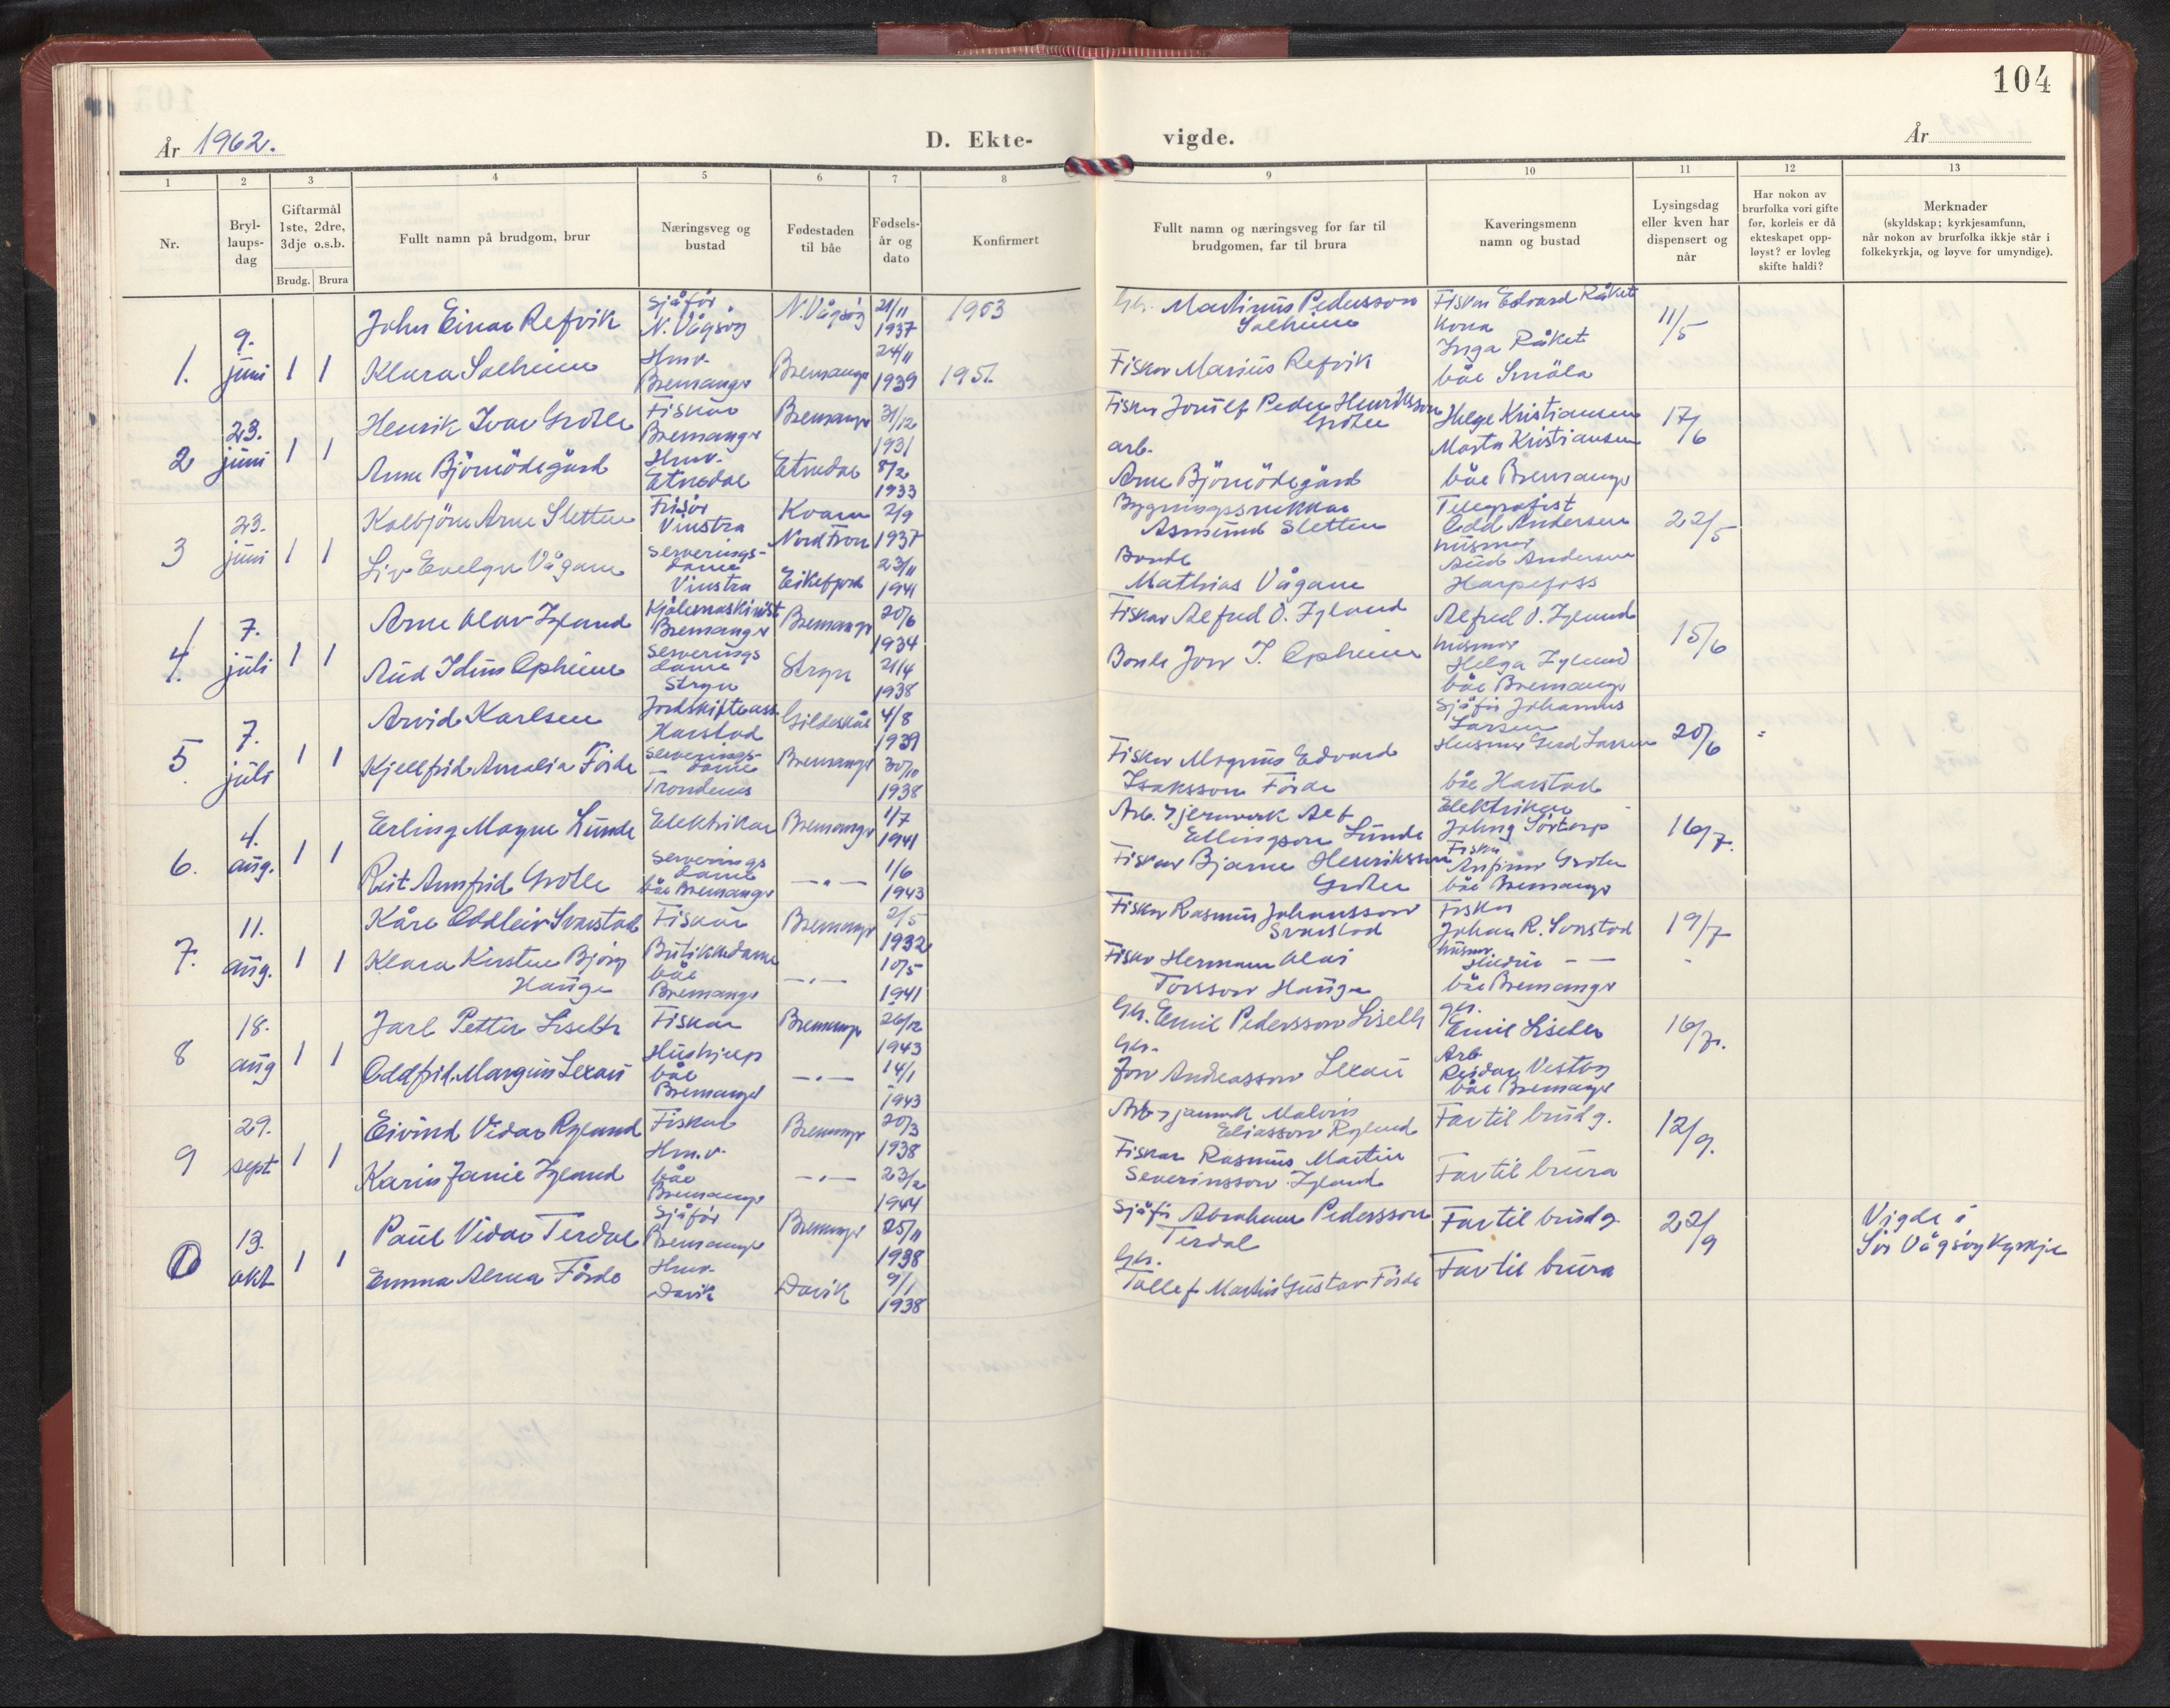 104
År 1962.
D. Ekte-
vigde.
År
1 2 3 4 5 6 7 8 9 10 11 12 13
Nr.
Bryl-
laups-
dag
Giftarmål
1ste, 2dre,
3dje o.s.b.
Brudg. Brura
Fullt namn på brudgom, brur
Næringsveg og
bustad
Fødestaden
til båe
Fødsels-
år og
dato
Konfirmert
Fullt namn og næringsveg for far til
brudgomen, far til brura
Kaveringsmenn
namn og bustad
Lysingsdag
eller kven har
dispensert og
når
Har nokon av
brurfolka vori gifte
før, korleis er då
ekteskapet opp-
løyst? er lovleg
skifte haldi?
Merknader
(skyldskap; kyrkjesamfunn,
når nokon av brurfolka ikkje står i
folkekyrkja, og løyve for umyndige).
1.
9.
juni
1 1
John Einar Refvik
Klara Solheim
Sjåfør
N. Vågsøy
Hmv.
Bremanger
N. Vågsøy
Bremanger
21/11
1937
24/11
1939
1953
1951.
Gbr. Martinus Pedersson
Solheim
Fiskar Marius Refvik
Fiskar Edvard Råket
Kona
Inga Råket
båe Smöla
11/5
2
23.
juni
1 1
Henrik Ivar Grotle
Anne Björnödegård
Fiskar
Bremanger
Hmv.
Etnedal
Bremanger
Etnedal
31/12
1931
8/2
1933
Fiskar Jonulf Peder Henriksson
Grotle
arb.
Arne Björnödegård
Helge Kristiansen
Marta Kristiansen
båe Bremanger
17/6
3
23.
juni
1 1
Kolbjörn Arne Sletten
Liv Evelyn Vågane
Frisör
Vinstra
Serverings-
dame
Vinstra
Kvam
Nordfron
Eikefjord
2/9
1937
23/11
1941
Bygningssnikkar
Asmund Sletten
Bonde
Mathias Vågane
Telegrafist
Odd Andersen
husmor
Aud Andersen
Harpefoss
22/5
4.
7.
juli
1 1
Arne Olav Igland
Aud Idun Opheim
Kjølemaskinist
Bremanger
Serverings
dame
Stryn
Bremanger
Stryn
20/6
1934
21/4
1938
Fiskar Alfred O. Igland
Bonde Jon I. Opheim
Alfred O. Igland
husmor
Helga Igland
båe Bremanger
15/6
5
7.
juli
1 1
Arvid Karlsen
Kjellfrid Amalia Förde
Jordskifteass.
Harstad
Serverings-
dame
Trondenes
Gildeskål
Bremanger
4/8
1939
30/10
1938
Fiskar Magnus Edvard
Isaksson Förde
Sjåför Johannes
Larsen
Husmor Gerd Larsen
båe Harstad
20/6
6.
4.
aug.
1 1
Erling Magne Lunde
Rut Annfrid Grotle
Elektrikar
Serverings
dame
båe Bremanger
Bremanger
— " —
1/7
1941
1/6
1943
Arb. v/jernverk Alf
Ellingson Lunde
Fiskar Bjarne Henriksson
Grotle
Elektrikar
Fiskar
Anfinn Grotle
båe Bremanger
16/7.
7.
11.
aug.
1 1
Kåre Oddleiv Svarstad
Klara Kirsten Bjørg
Hauge
Fiskar
Butikkdame
båe
Bremanger
Bremanger
— " —
2/5
1932
10/5
1941
Fiskar Rasmus Johansson
Svarstad
Fiskar Hermann Olai
Torsson Hauge
Fiskar
Johan R. Svarstad
husmor
båe Bremanger
19/7
8
18.
aug
1 1
Jarl Petter Liseth
Oddfrid Margun Lexau
Fiskar
Hushjelp
båe
Bremanger
Bremanger
— " —
26/12
1943
14/1
1943
Gbr. Emil Pedersson Liseth
Gbr.
Jon Andreasson Lexau
gbr.
Emil Liseth
Arb.
Reidar Vestøy
båe Bremanger
16/7.
9
29.
sept
1 1
Eivind Vidar Rylund
Karin Janie Igland
Fiskar
Hmv.
båe
Bremanger
Bremanger
— " —
20/3
1938
23/2
1944
Arb v/jarnverk Malvin
Eliasson Rylund
Fiskar Rasmus Martin
Severinsson Igland
Far til brudg.
Far til brura
12/9.
10
13.
okt
1 1
Paul Vidar Terdal
Emma Alma Förde
Sjåför
Bremanger
Hmv.
Davik
Bremanger
Davik
25/11
1938
9/1
1938
Sjåfør Abraham Pedersson
Terdal
Gbr.
Tollef Martin Gustav Förde
Far til brudg.
Far til brura
22/9
Vigde i
Sör Vågsöy Kyrkje